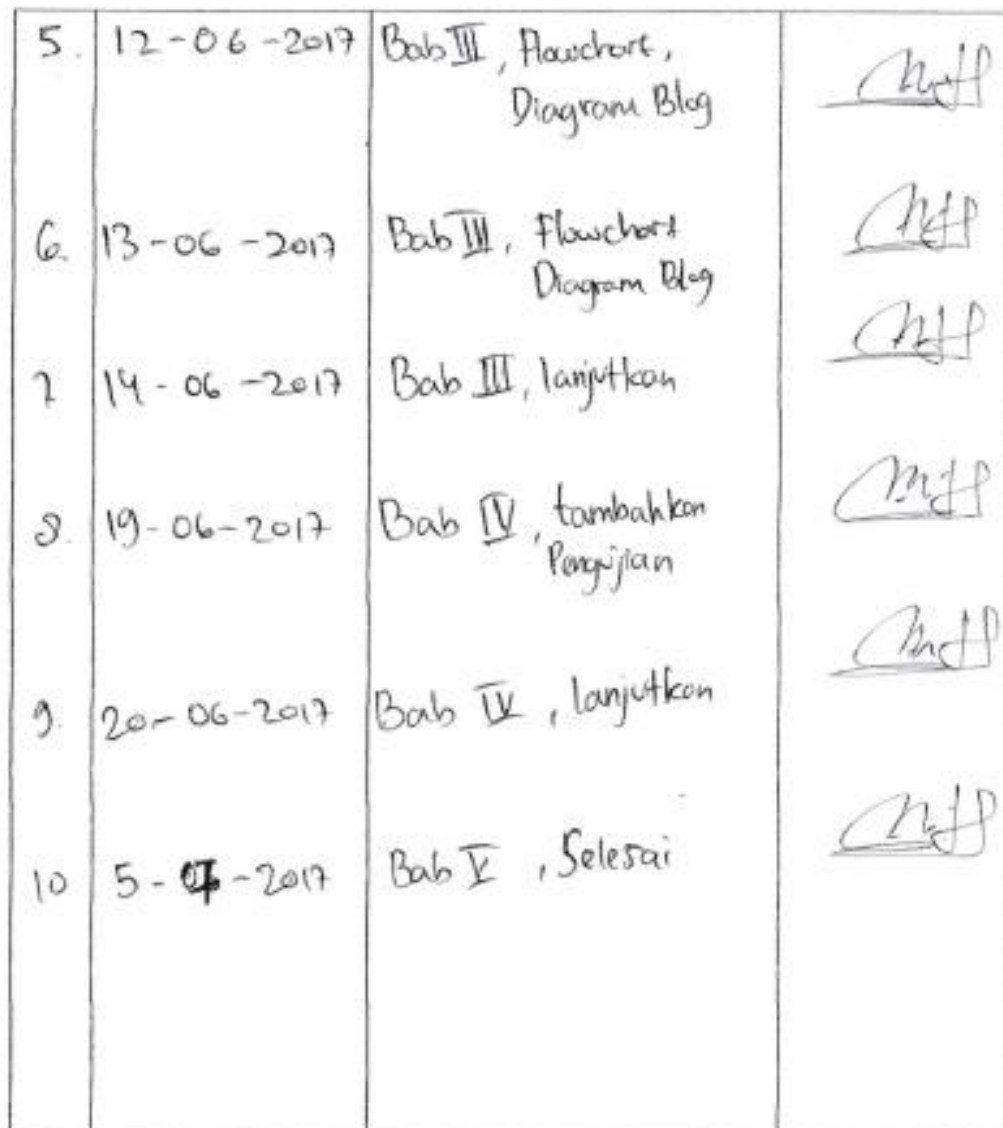 5. 12-06-2017 Bab III, Flowchart,
Diagram Blog
6. 13-06-2017 Bab III, Flowchart
Diagram Blog
7 14-06-2017 Bab III, lanjutkan
8. 19-06-2017 Bab IV, tambahkan
Pengujian
9. 20-06-2017 Bab IV, lanjutkan
10 5-07-2017 Bab V, Selesai